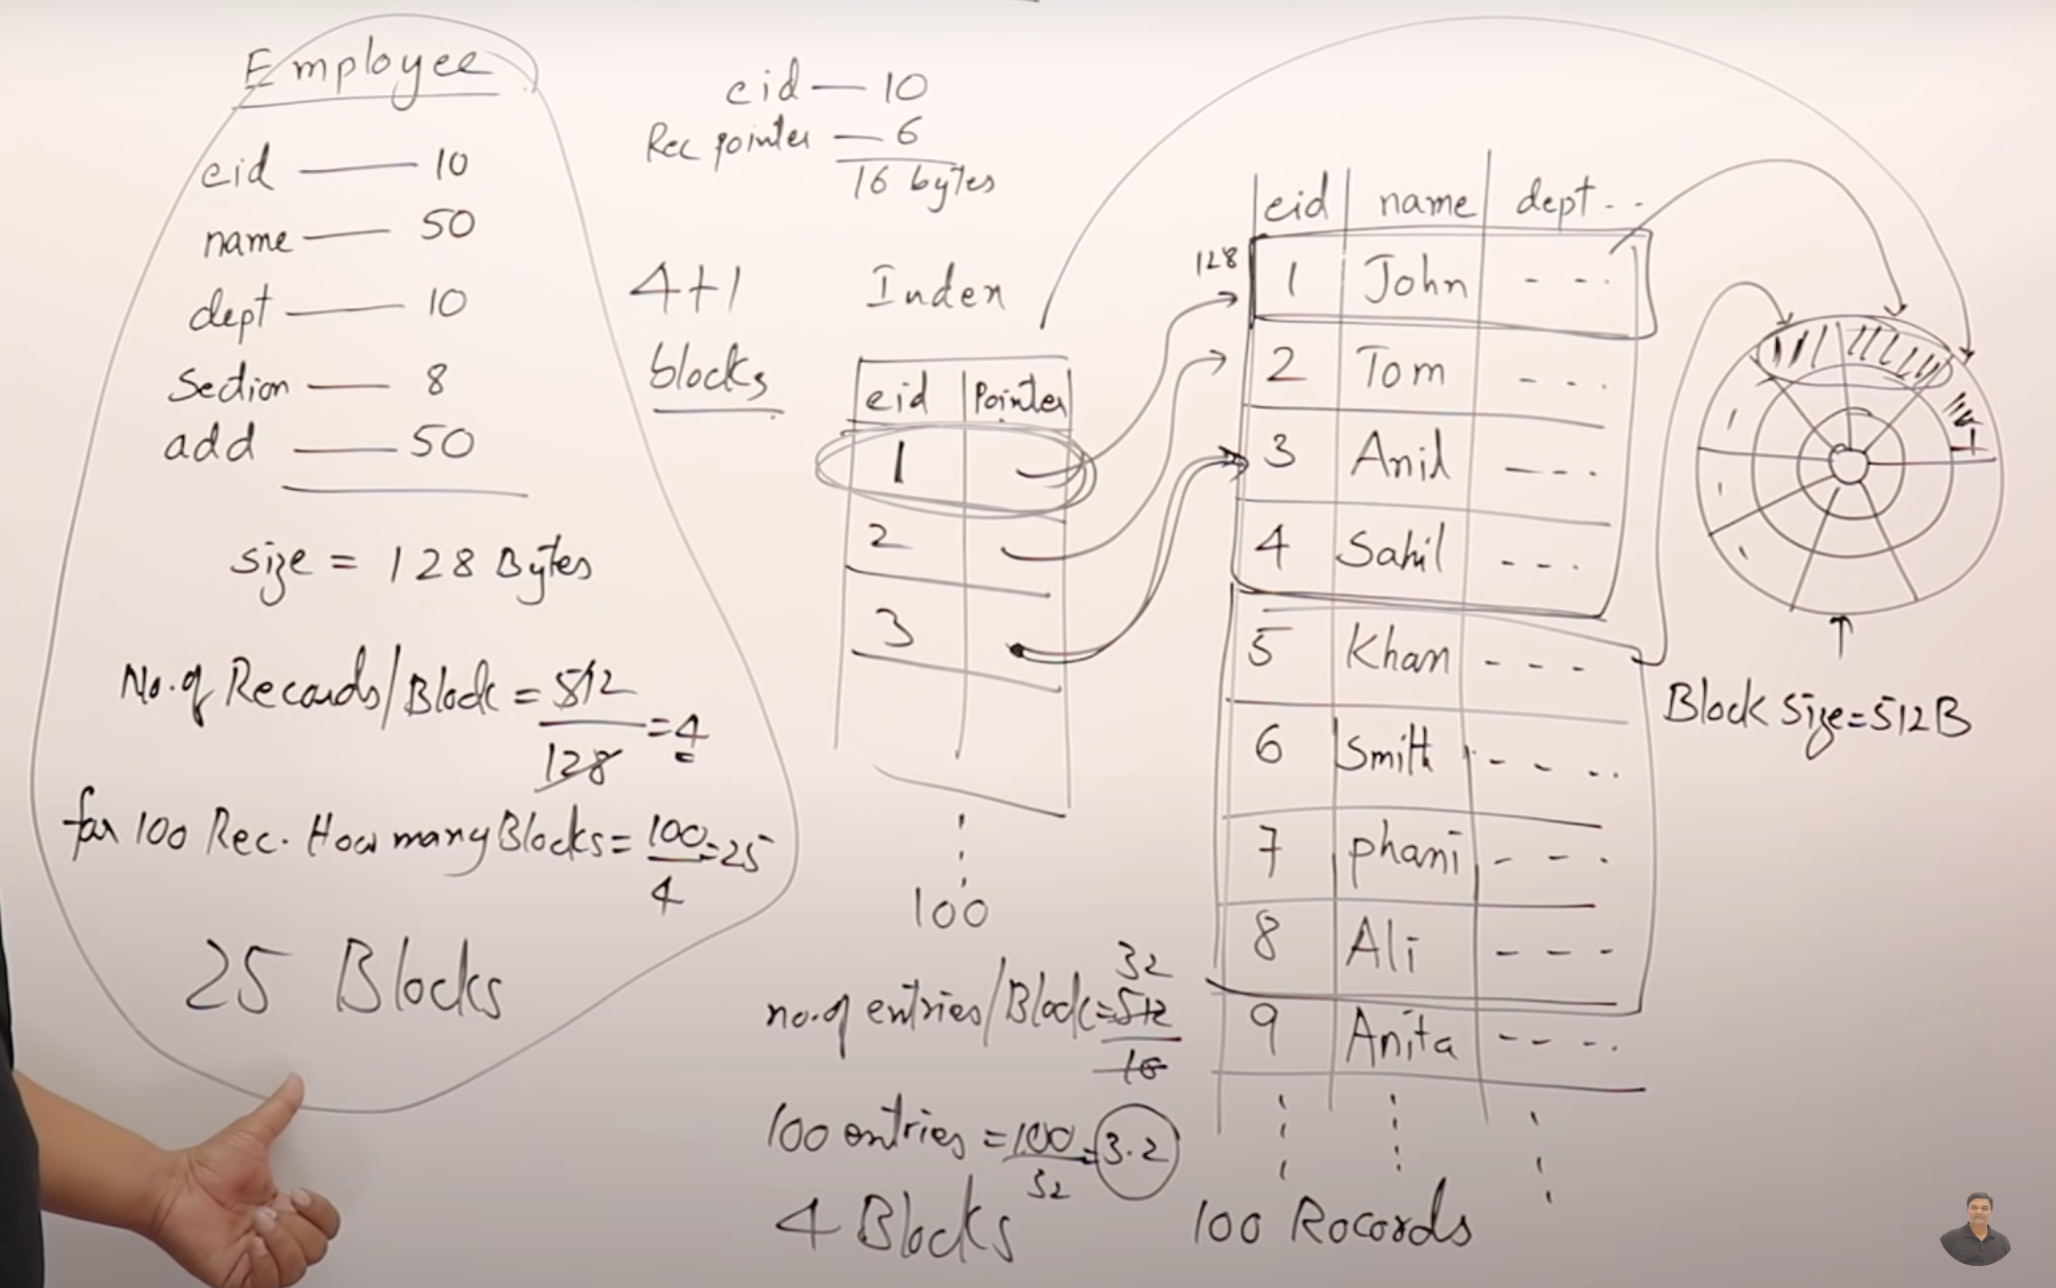 Employee
eid — 10
name — 50
dept — 10
Section — 8
add — 50
size = 128 Bytes
No. of Records/Block = 512/128 = 4
for 100 Rec. How many Blocks = 100/4 = 25
25 Blocks
eid — 10
Rec pointer — 6
16 bytes
4+1
blocks
Index
eid Pointer
1
2
3
100
32
no. of entries/Block = 512/16
100 entries = 100/32 = 3.2
4 Blocks
128
eid name dept ..
1 John - - -
2 Tom - - -
3 Anil - - -
4 Sahil - - -
5 Khan - - -
6 Smith - - - -
7 phani - - -
8 Ali - - -
9 Anita - - - -
100 Rocords
Block Size = 512B